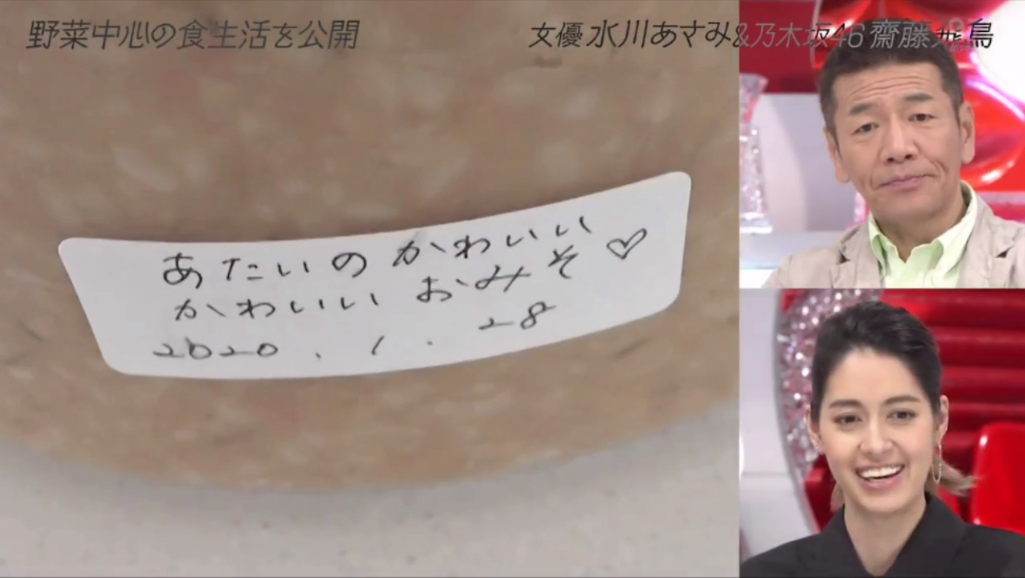 野菜中心の食生活を公開
女優 水川あさみ&乃木坂46 齋藤飛鳥
あたいのかわいい
かわいいおみそ♡
2020.1.28